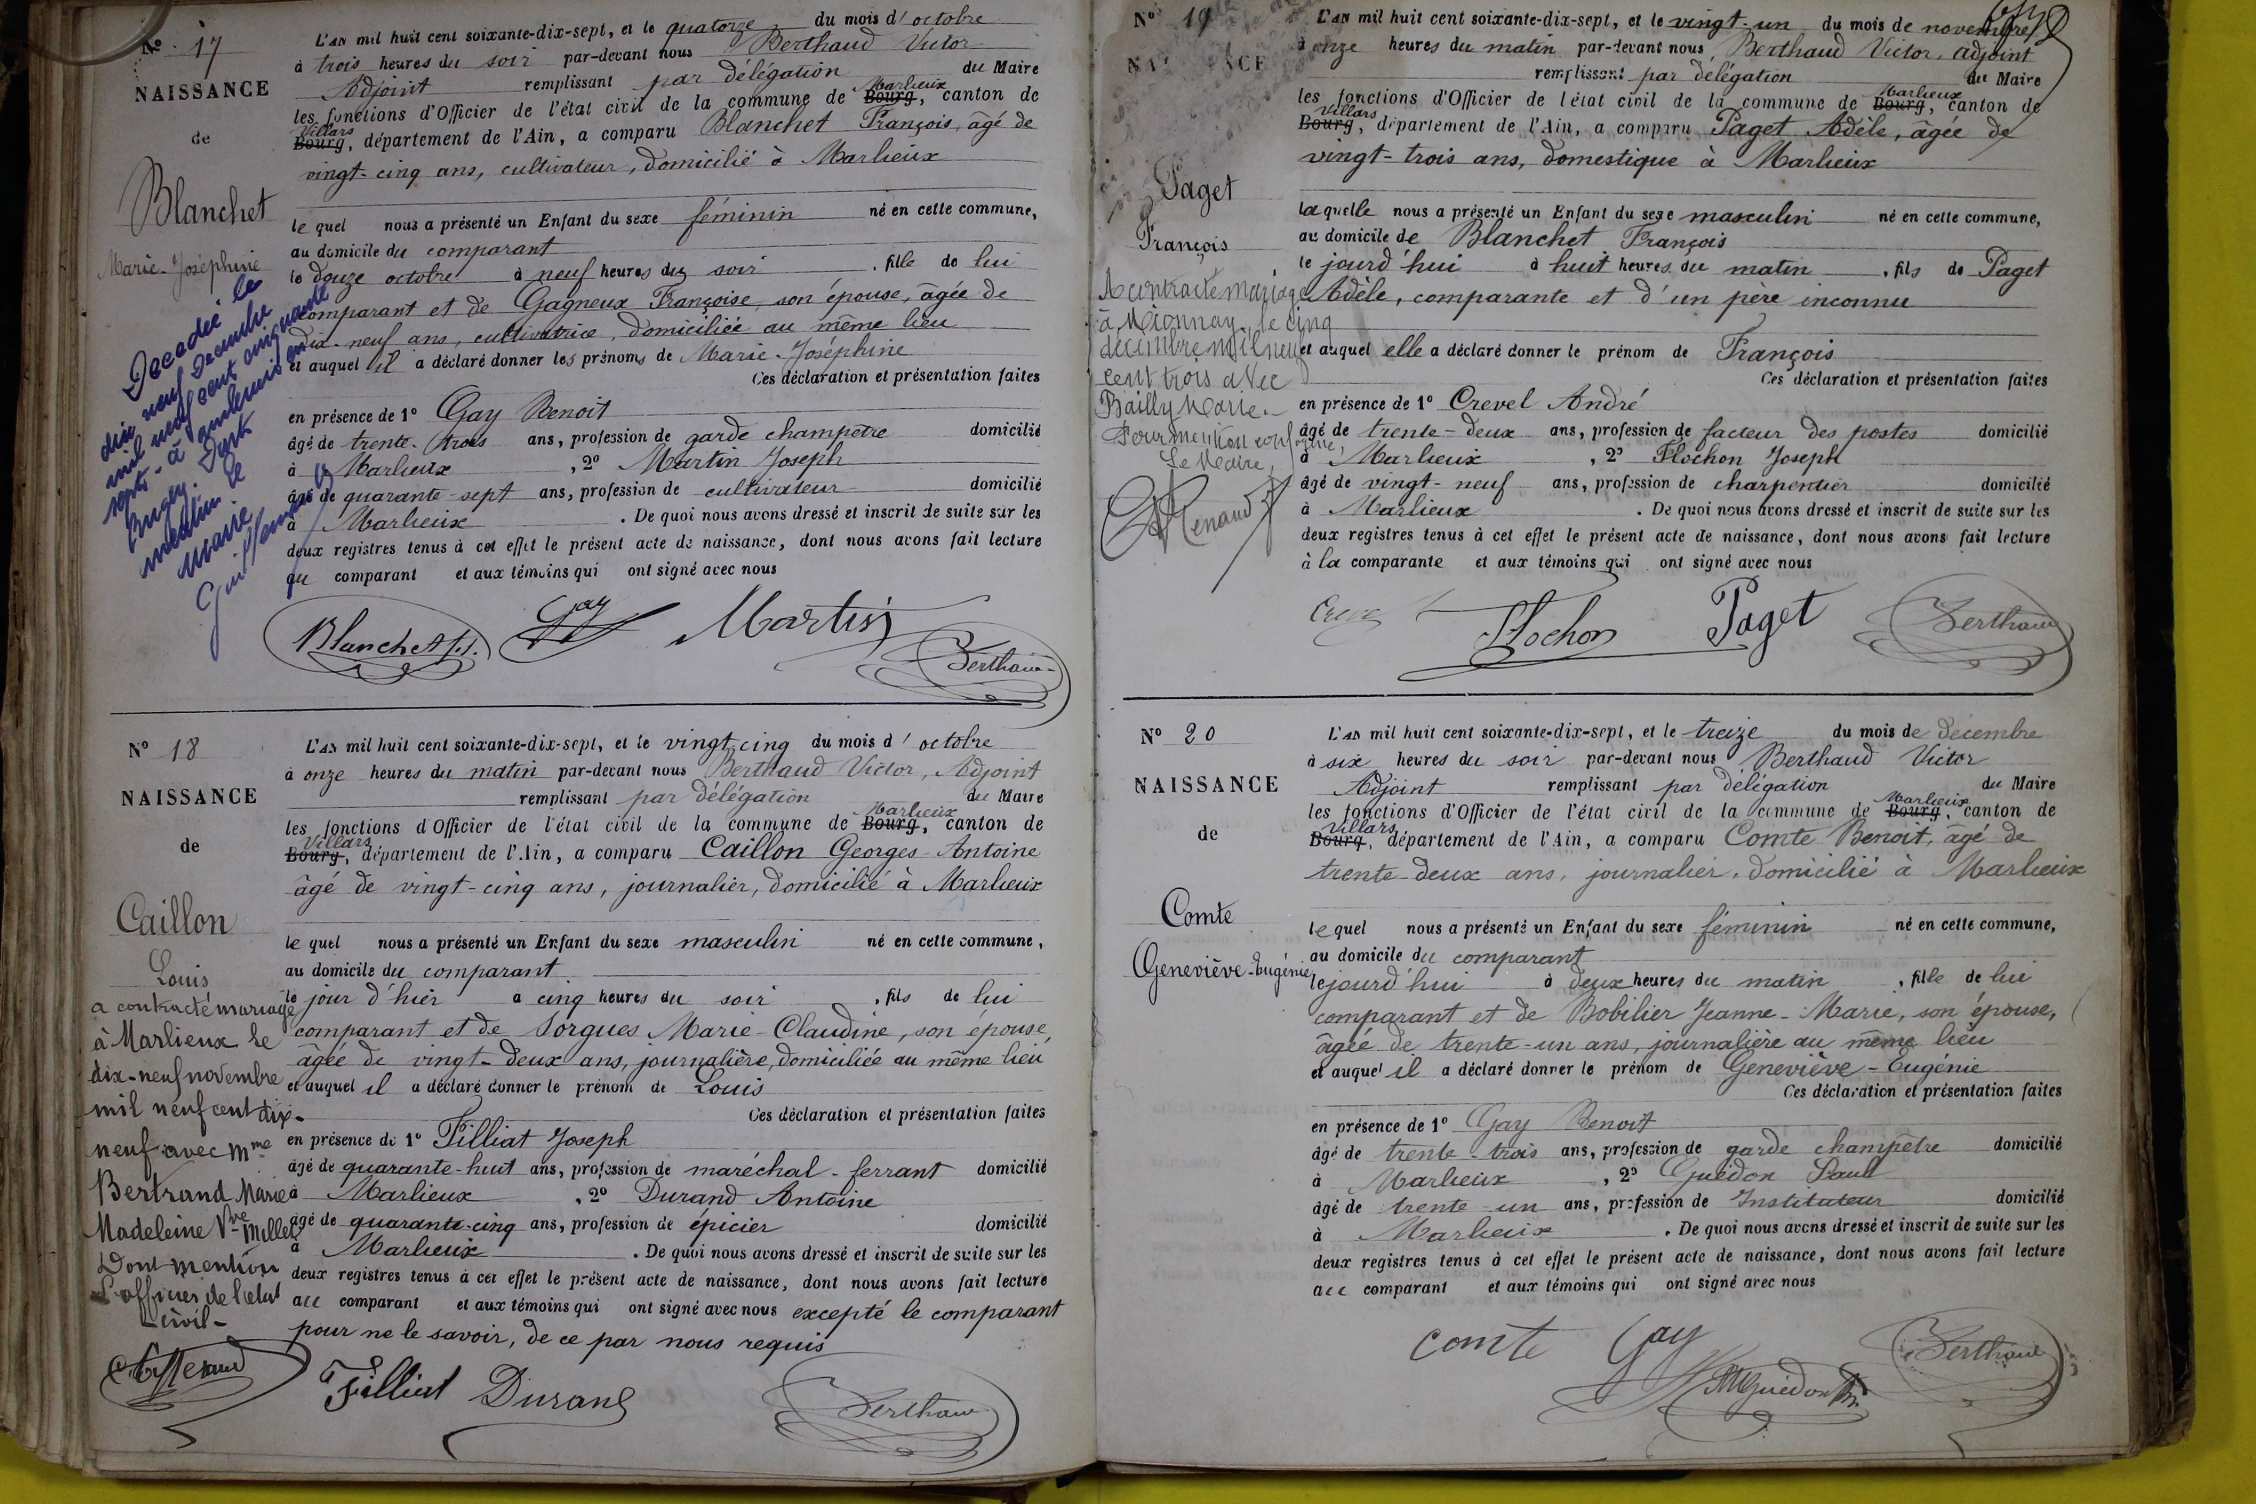 N° 17
NAISSANCE
de
Blanchet
Marie-Joséphine
Décédée le
dix neuf Decembre
mil neuf cent cinquante
sept - à Ambérieu en
Bugey. Dont
mention le
Maire
L'AN mil huit cent soixante-dix-sept, et le quatorze du mois d'octobre
à trois heures du soir par-devant nous Berthaud Victor
Adjoint remplissant par délégation du Maire
les fonctions d'Officier de l'état civil de la commune de Bourg Marlieux, canton de
Bourg Villars, département de l'Ain, a comparu Blanchet François, âgé de
vingt-cinq ans, cultivateur, domicilié à Marlieux
le quel nous a présenté un Enfant du sexe féminin né en cette commune,
au domicile du comparant
le douze octobre à neuf heures du soir, fille de lui
comparant et de Gagneux Françoise, son épouse, âgée de
dix-neuf ans, cultivatrice, domiciliée au même lieu
et auquel il a déclaré donner les prénoms de Marie-Joséphine
Ces déclaration et présentation faites
en présence de 1° Gay Benoit
âgé de trente-trois ans, profession de garde champêtre domicilié
à Marlieux, 2° Martin Joseph
âgé de quarante-sept ans, profession de cultivateur domicilié
à Marlieux. De quoi nous avons dressé et inscrit de suite sur les
deux registres tenus à cet effet le présent acte de naissance, dont nous avons fait lecture
au comparant et aux témoins qui ont signé avec nous
Blanchet Gay Martin
Berthaud
N° 18
NAISSANCE
de
Caillon
Louis
a contracté mariage
à Marlieux le
dix-neuf novembre
mil neuf cent dix-
neuf avec Mme
Bertrand Marie
Madeleine Vve Millet
Dont mention
L'officier de l'état
civil-
L'AN mil huit cent soixante-dix-sept, et le vingt-cinq du mois d'octobre
à onze heures du matin par-devant nous Berthaud Victor, Adjoint
remplissant par délégation du Maire
les fonctions d'Officier de l'état civil de la commune de Bourg Marlieux, canton de
Bourg Villars, département de l'Ain, a comparu Caillon Georges-Antoine
âgé de vingt-cinq ans, journalier, domicilié à Marlieux
le quel nous a présenté un Enfant du sexe masculin né en cette commune,
au domicile du comparant
le jour d'hier à cinq heures du soir, fils de lui
comparant et de Sorgues Marie-Claudine, son épouse,
âgée de vingt-deux ans, journalière, domiciliée au même lieu
et auquel il a déclaré donner le prénom de Louis
Ces déclaration et présentation faites
en présence de 1° Filliat Joseph
âgé de quarante-huit ans, profession de maréchal-ferrant domicilié
à Marlieux, 2° Durand Antoine
âgé de quarante-cinq ans, profession de épicier domicilié
à Marlieux. De quoi nous avons dressé et inscrit de suite sur les
deux registres tenus à cet effet le présent acte de naissance, dont nous avons fait lecture
au comparant et aux témoins qui ont signé avec nous excepté le comparant
pour ne le savoir, de ce par nous requis
Filliat Durand Berthaud
N° 19
NAISSANCE
Paget
François
A contracté mariage
à Mionnay, le cinq
décembre mil neuf
cent trois avec
Bailly Marie.-
Pour mention conforme,
Le Maire,
Renaud
L'AN mil huit cent soixante-dix-sept, et le vingt-un du mois de novembre
à onze heures du matin par-devant nous Berthaud Victor, adjoint
remplissant par délégation du Maire
les fonctions d'Officier de l'état civil de la commune de Bourg Marlieux, canton de
Bourg Villars, département de l'Ain, a comparu Paget Adèle, âgée de
vingt-trois ans, domestique à Marlieux
laquelle nous a présenté un Enfant du sexe masculin né en cette commune,
au domicile de Blanchet François
le jourd'hui à huit heures du matin, fils de Paget
Adèle, comparante et d'un père inconnu
et auquel elle a déclaré donner le prénom de François
Ces déclaration et présentation faites
en présence de 1° Crevel André
âgé de trente-deux ans, profession de facteur des postes domicilié
à Marlieux, 2° Flochon Joseph
âgé de vingt-neuf ans, profession de charpentier domicilié
à Marlieux. De quoi nous avons dressé et inscrit de suite sur les
deux registres tenus à cet effet le présent acte de naissance, dont nous avons fait lecture
à la comparante et aux témoins qui ont signé avec nous
Crevel Flochon Paget Berthaud
N° 20
NAISSANCE
de
Comte
Geneviève-Eugénie
L'AN mil huit cent soixante-dix-sept, et le treize du mois de décembre
à six heures du soir par-devant nous Berthaud Victor
Adjoint remplissant par délégation du Maire
les fonctions d'Officier de l'état civil de la commune de Bourg Marlieux, canton de
Bourg Villars, département de l'Ain, a comparu Comte Benoit, âgé de
trente-deux ans, journalier, domicilié à Marlieux
le quel nous a présenté un Enfant du sexe féminin né en cette commune,
au domicile du comparant
le jourd'hui à deux heures du matin, fille de lui
comparant et de Bobilier Jeanne-Marie, son épouse,
âgée de trente-un ans, journalière au même lieu
et auquel il a déclaré donner le prénom de Geneviève-Eugénie
Ces déclaration et présentation faites
en présence de 1° Gay Benoit
âgé de trente-trois ans, profession de garde champêtre domicilié
à Marlieux, 2° Guédon Paul
âgé de trente-un ans, profession de Instituteur domicilié
à Marlieux. De quoi nous avons dressé et inscrit de suite sur les
deux registres tenus à cet effet le présent acte de naissance, dont nous avons fait lecture
au comparant et aux témoins qui ont signé avec nous
Comte Gay Berthaud
Guédon